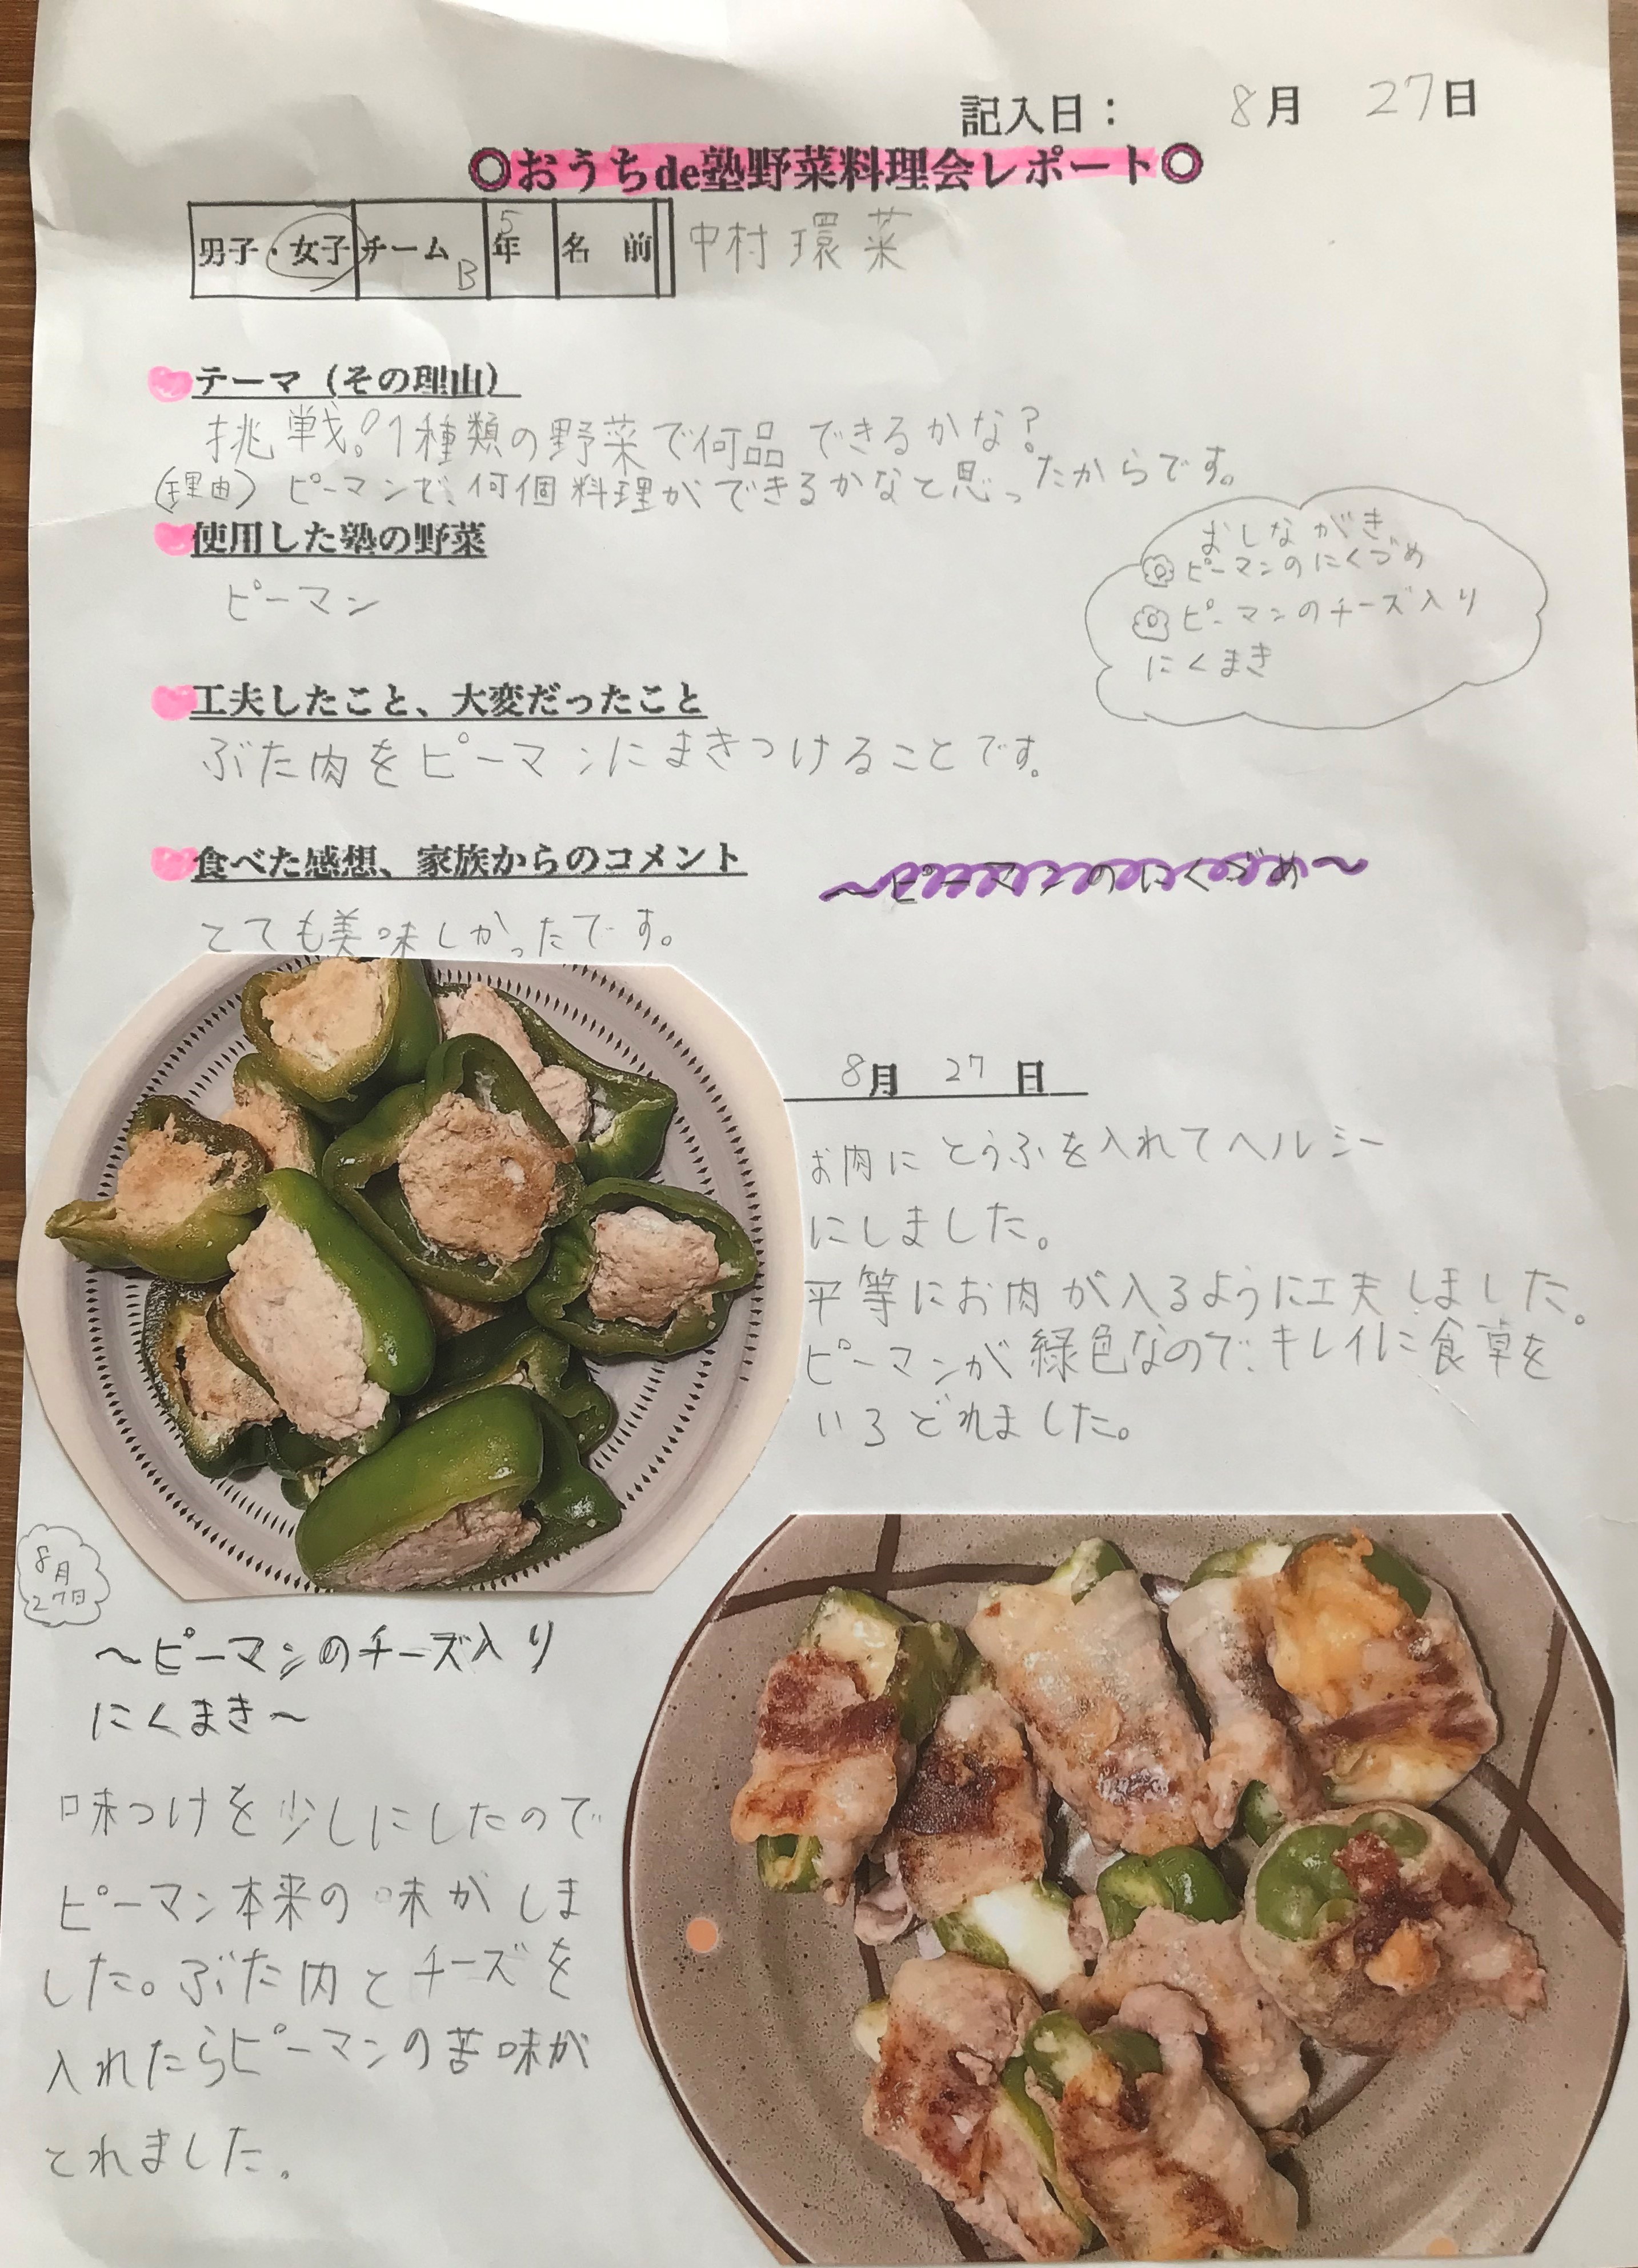 記入日： 8月 27日
◎おうちde塾野菜料理会レポート◎
男子・女子 チームB 5年 名前 中村環菜
テーマ（その理由）
挑戦。1種類の野菜で何品できるかな？
(理由) ピーマンで、何個料理ができるかなと思ったからです。
使用した塾の野菜
ピーマン
おしながき
ピーマンのにくづめ
ピーマンのチーズ入り
にくまき
工夫したこと、大変だったこと
ぶた肉をピーマンにまきつけることです。
食べた感想、家族からのコメント
とても美味しかったです。
〜ピーマンのにくづめ〜
8月 27日
お肉にとうふを入れてヘルシー
にしました。
平等にお肉が入るように工夫しました。
ピーマンが緑色なので、キレイに食卓を
いろどれました。
8月
27日
〜ピーマンのチーズ入り
にくまき〜
味つけを少しにしたので
ピーマン本来の味がしま
した。ぶた肉とチーズを
入れたらピーマンの苦味が
とれました。